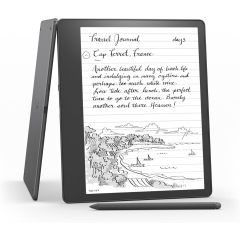 Travel Journal day 3
Cap Ferret, France
Another beautiful day of beach life
and indulging in many oysters and
perhaps too much white wine.
Low tide after lunch, the perfect
time to go to the ocean. Probably
another soul there. Heaven!